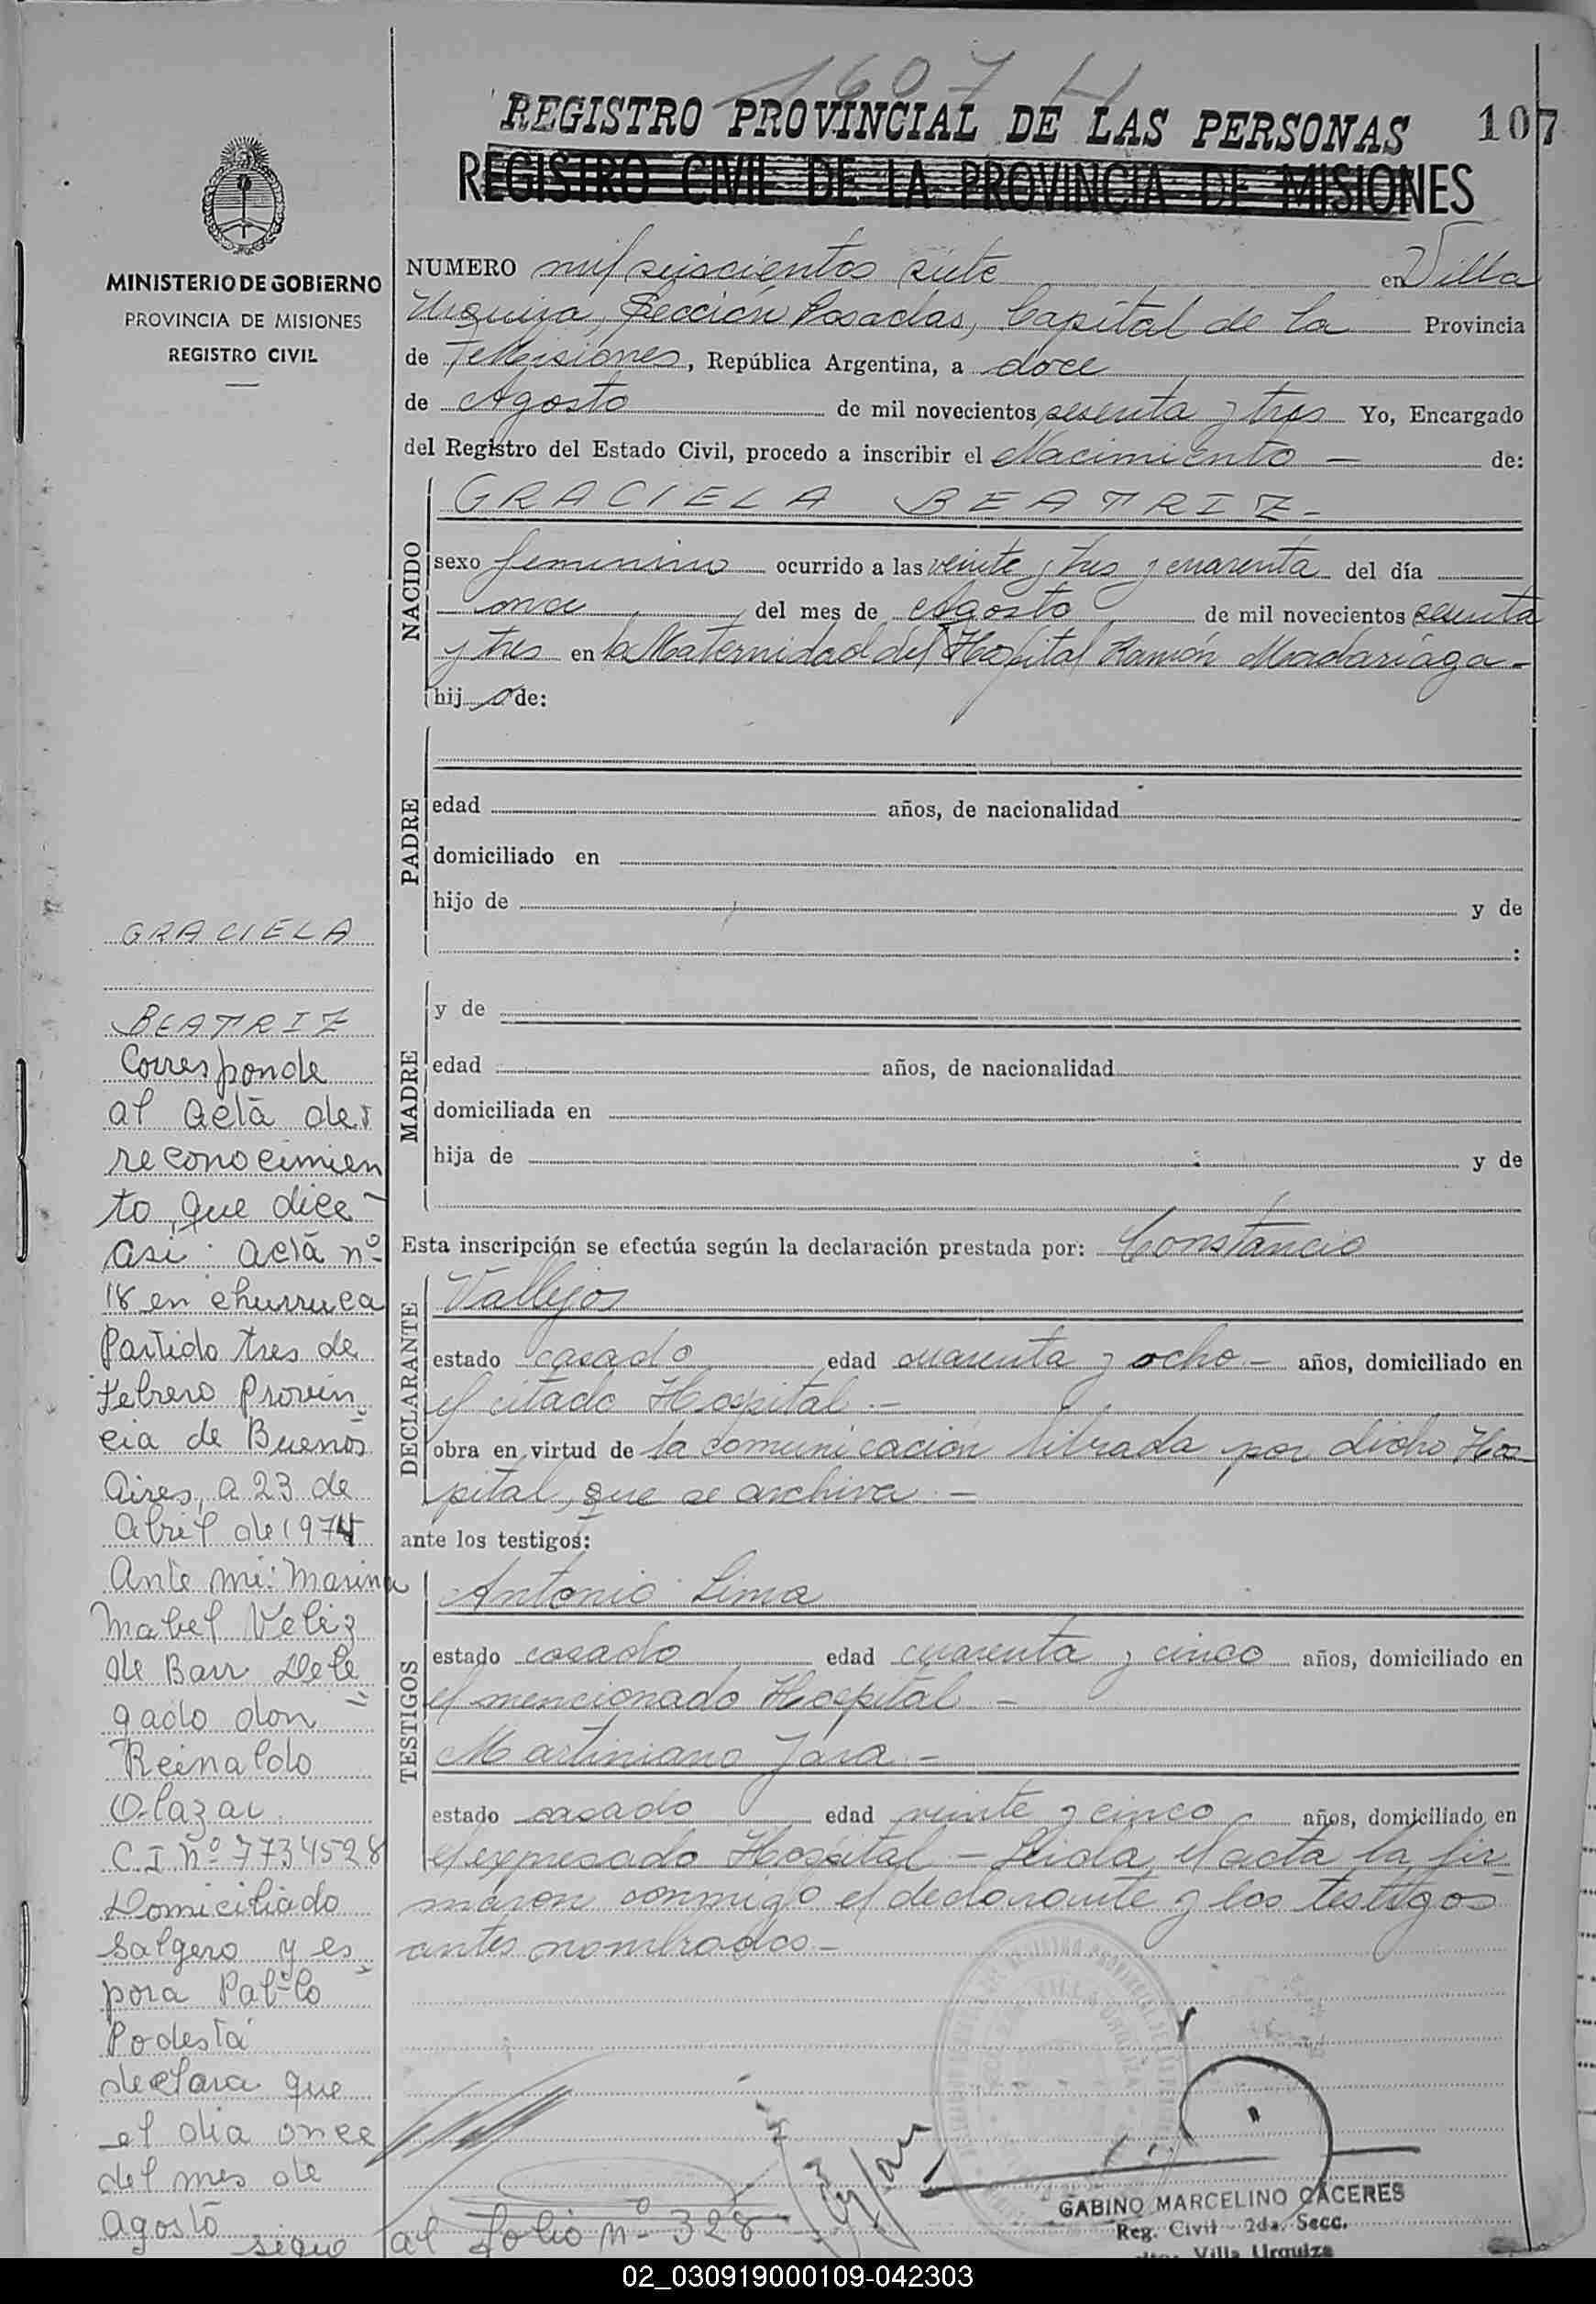 1607 H
REGISTRO PROVINCIAL DE LAS PERSONAS
107
REGISTRO CIVIL DE LA PROVINCIA DE MISIONES
MINISTERIO DE GOBIERNO
PROVINCIA DE MISIONES
REGISTRO CIVIL
NUMERO mil seiscientos siete en Villa
Urquiza, Sección Posadas, Capital de la Provincia
de Misiones, República Argentina, a doce
de Agosto de mil novecientos sesenta y tres Yo, Encargado
del Registro del Estado Civil, procedo a inscribir el Nacimiento — de:
NACIDO
GRACIELA BEATRIZ-
sexo femenino ocurrido a las veinte y tres y cuarenta del día
once del mes de Agosto de mil novecientos sesenta
y tres en la Maternidad del Hospital Ramón Madariaga-
hij a de:
PADRE
edad años, de nacionalidad
domiciliado en
hijo de y de
:
MADRE
y de
edad años, de nacionalidad
domiciliada en
hija de y de
Esta inscripción se efectúa según la declaración prestada por: Constancio
DECLARANTE
Vallejos
estado casado edad cuarenta y ocho- años, domiciliado en
el citado Hospital.-
obra en virtud de la comunicación librada por dicho Hos-
pital, que se archiva.-
ante los testigos:
TESTIGOS
Antonio Lima
estado casado edad cuarenta y cinco años, domiciliado en
el mencionado Hospital -
Martiniano Jara.-
estado casado edad veinte y cinco años, domiciliado en
el expresado Hospital - Leida el acta la fir-
maron conmigo el declarante y los testigos
antes nombrados-
GRACIELA
BEATRIZ
Corresponde
al acta de
reconocimien
to, que dice
asi: acta nº
18 en churruca
Partido tres de
Febrero Provin
cia de Buenos
Aires, a 23 de
abril de 1974
Ante mi: Marina
Mabel Veliz
de Barr Dele
gado don
Reinaldo
Olazar
C.I. Nº 7734528
Domiciliado
Salgero y es
pora Pablo
Podestá
declara que
el dia once
del mes de
agosto
sigue al folio nº 328
GABINO MARCELINO CACERES
Reg. Civil - 2da. Secc.
Villa Urquiza
02_030919000109-042303